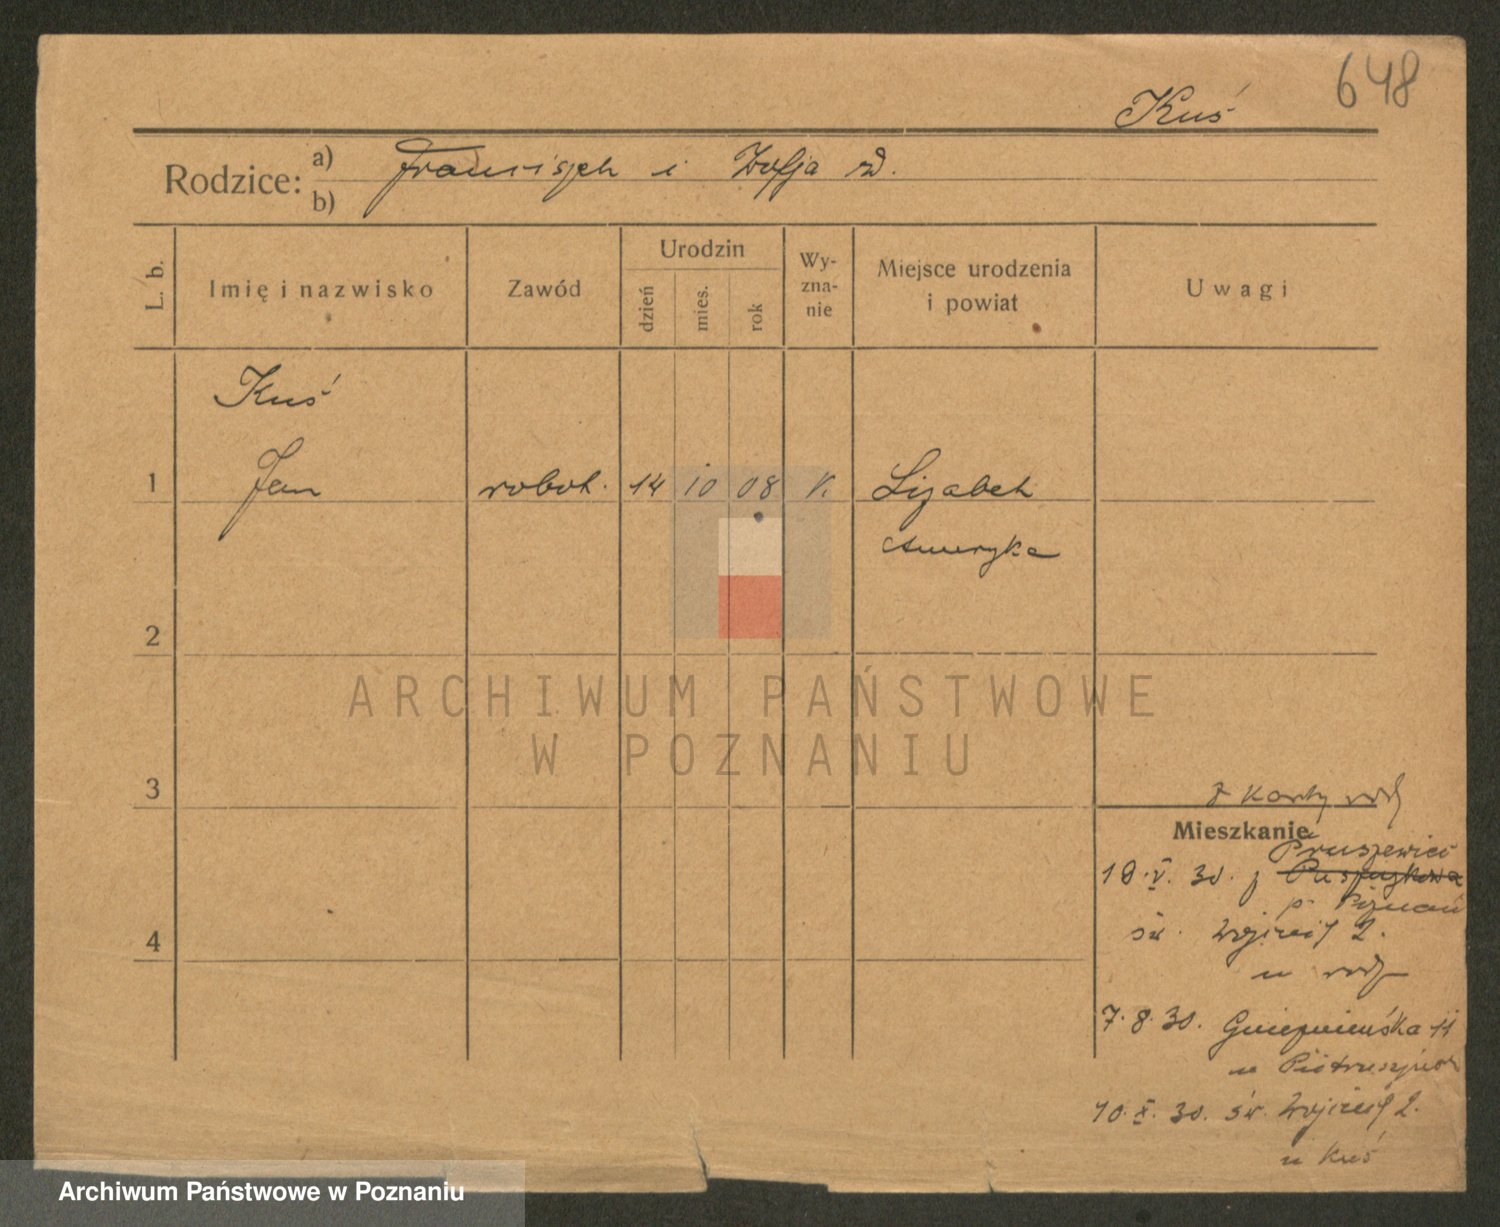 648
Kuś
Rodzice:
a) Franciszek i Zofja rd.
b)
L. b.
Imię i nazwisko
Zawód
Urodzin
dzień
mies.
rok
Wy-
zna-
nie
Miejsce urodzenia
i powiat
Uwagi
Kuś
1 Jan robot. 14 10 08 K. Lizabeth
Ameryka
2
ARCHIWUM PAŃSTWOWE
W POZNANIU
3
z Karty rodz
Mieszkanie
Pruszewiec
18.V.30. z
p. Poznań
św. Wojciech 2.
u rodz
7.8.30. Gnieźnieńska 11
u
10.X.30. św. Wojciech 2.
u Kuś
4
Archiwum Państwowe w Poznaniu